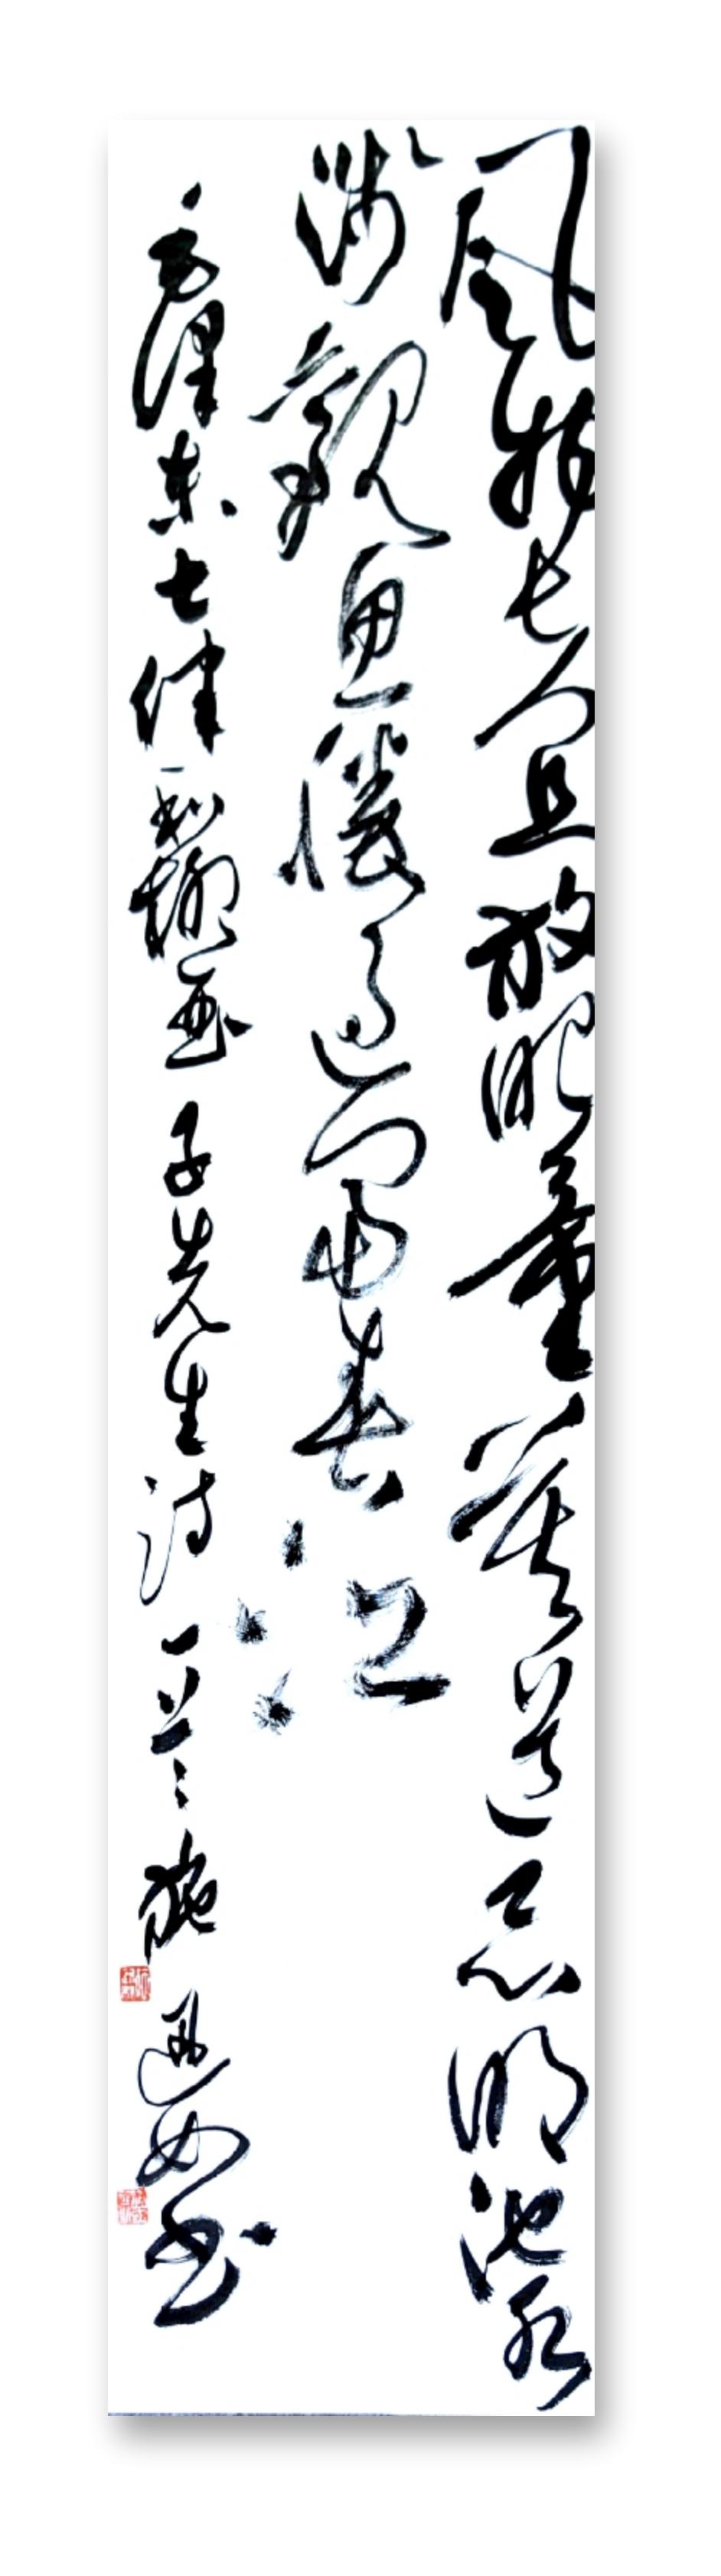 風物长宜放眼量莫道昆明池水
淺觀魚勝過富春江
毛澤東七律和柳亞子先生詩一首 施 书